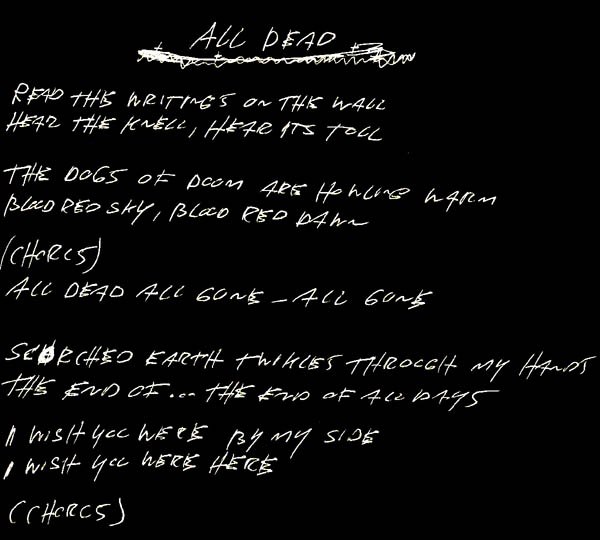 ALL DEAD
READ THE WRITINGS ON THE WALL
HEAR THE KNELL, HEAR ITS TOLL
THE DOGS OF DOOM ARE HOWLING WARM
BLOOD RED SKY, BLOOD RED DAWN
(CHORUS)
ALL DEAD ALL GONE - ALL GONE
SCORCHED EARTH TWINKLES THROUGH MY HANDS
THE END OF... THE END OF ALL DAYS
I WISH YOU WERE BY MY SIDE
I WISH YOU WERE HERE
(CHORUS)